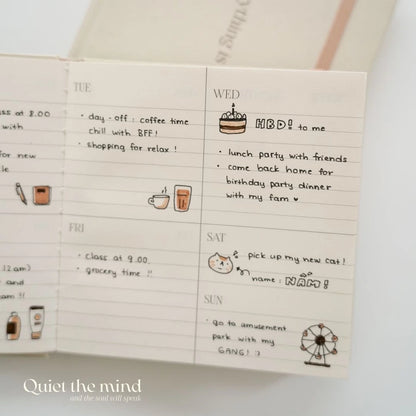 ything is
ass at 8.00
with
for new
le
12 am)
and
am !!
TUE
• day - off : coffee time
chill with BFF!
• shopping for relax !
WED
HBD! to me
• lunch party with friends
• come back home for
birthday party dinner
with my fam ♥
FRI
• class at 9.00.
• grocery time !!
SAT
pick up my new cat!
name : NĂM!
SUN
• go to amusement
park with my
GANG! :)
Quiet the mind
and the soul will speak